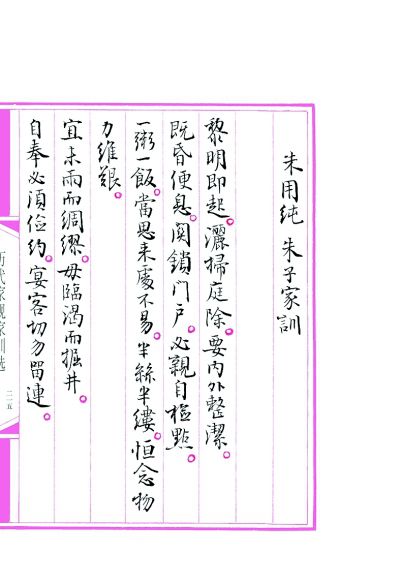 朱用纯 朱子家訓
黎明即起。灑掃庭除。要内外整潔。
既昏便息。関鎖门户。必親自檢點。
一粥一飯。當思来處不易。半絲半縷。恒念物
力維艱。
宜未雨而绸缪。毋臨渴而掘井。
自奉必須俭约。宴客切勿留連。
历代家规家训选
二一五